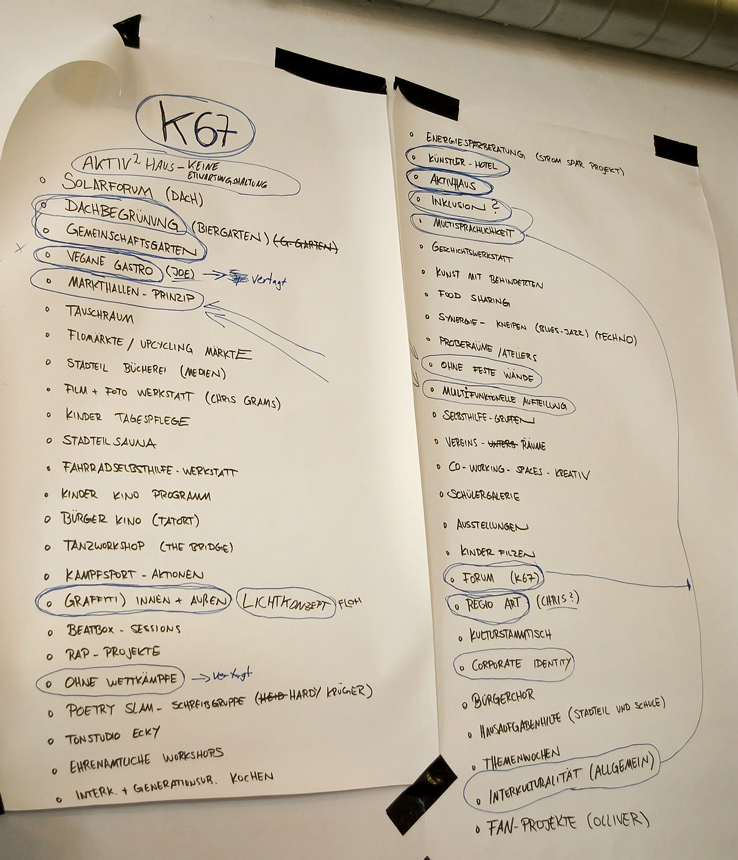 K67
AKTIV² HAUS - KEINE
ERWARTUNGSHALTUNG
SOLARFORUM (DACH)
DACHBEGRÜNUNG (BIERGARTEN) (G. GARTEN)
GEMEINSCHAFTSGARTEN
VEGANE GASTRO (JOE) → vertagt
MARKTHALLEN-PRINZIP
TAUSCHRAUM
FLOMÄRKTE / UPCYLING MÄRKTE
STADTEIL BÜCHEREI (MEDIEN)
FILM + FOTO WERKSTATT (CHRIS GRAMS)
KINDER TAGESPFLEGE
STADTEIL SAUNA
FAHRRADSELBSTHILFE-WERKSTATT
KINDER KINO PROGRAMM
BÜRGER KINO (TATORT)
TANZWORKSHOP (THE BRIDGE)
KAMPFSPORT-AKTIONEN
GRAFFITI) INNEN + AUßEN LICHTKONZEPT FLOH
BEATBOX-SESSIONS
RAP-PROJEKTE
OHNE WETTKÄMPFE → vertagt
POETRY SLAM- SCHREIBGRUPPE (HEID HARDY KRÜGER)
TONSTUDIO ECKY
EHRENAMTLICHE WORKSHOPS
INTERK. + GENERATIONSÜR. KOCHEN
ENERGIESPARBERATUNG (STROM SPAR PROJEKT)
KÜNSTLER-HOTEL
AKTIVHAUS
INKLUSION?
MULTISPRACHLICHKEIT
GESCHICHTSWERKSTATT
KUNST MIT BEHINDERTEN
FOOD SHARING
SYNERGIE- KNEIPEN (BLUES-JAZZ) (TECHNO)
PROBERÄUME/ATELIERS
OHNE FESTE WÄNDE
MULTIFUNKTIONELLE AUFTEILUNG
SELBSTHILFE-GRUPPEN
VEREINS- UNTERS RÄUME
CO-WORKING-SPACES-KREATIV
SCHÜLERGALERIE
AUSSTELLUNGEN
KINDER FILZEN
FORUM (K67)
REGIO ART (CHRIS?)
KULTURSTAMMTISCH
CORPORATE IDENTITY
BÜRGERCHOR
HAUSAUFGABENHILFE (STADTEIL UND SCHULE)
THEMENWOCHEN
INTERKULTURALITÄT (ALLGEMEIN)
FAN-PROJEKTE (OLLIVER)